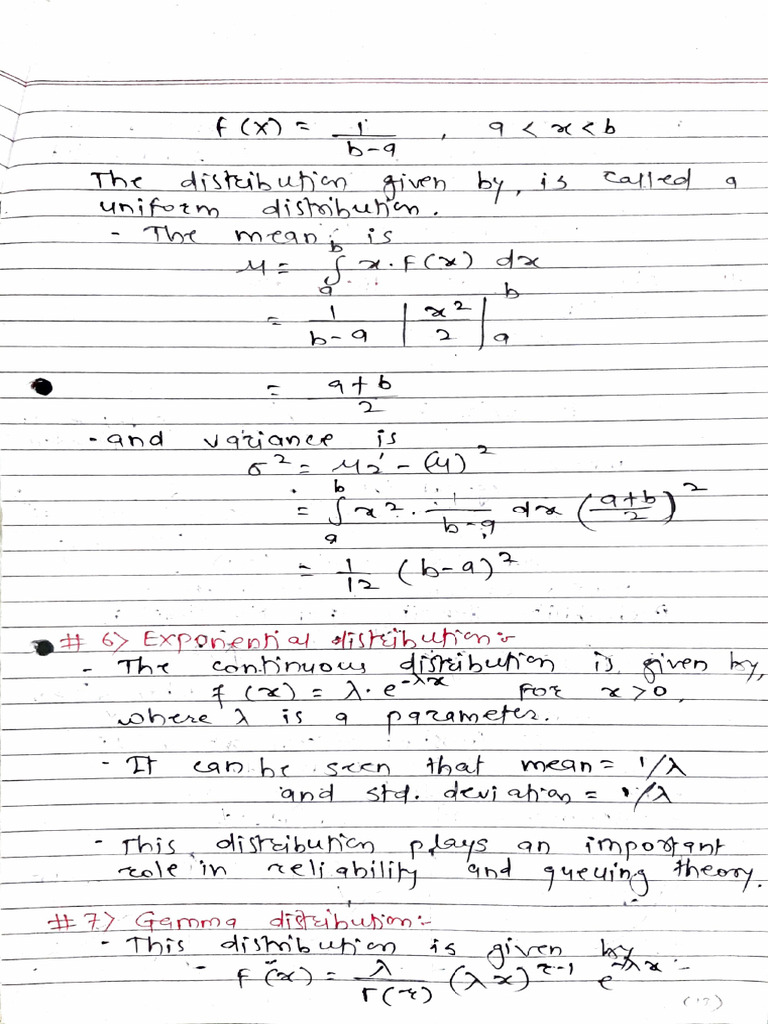 f(x) = 1/(b-a) , a < x < b
The distribution given by, is called a
uniform distribution.
- The mean is
μ = ∫_a^b x.f(x) dx
= 1/(b-a) |x²/2|_a^b
= (a+b)/2
- and variance is
σ² = μ2' - (μ)²
= ∫_a^b x² · 1/(b-a) dx ((a+b)/2)²
= 1/12 (b-a)²
# 6> Exponential distribution:-
- The continuous distribution is given by,
f(x) = λ·e^(-λx) for x>0,
where λ is a parameter.
- It can be seen that mean = 1/λ
and std. deviation = 1/λ
- This distribution plays an important
role in reliability and queuing theory.
# 7> Gamma distribution:-
- This distribution is given by
- f(x) = λ/Γ(r) (λx)^(r-1) e^(-λx) :-